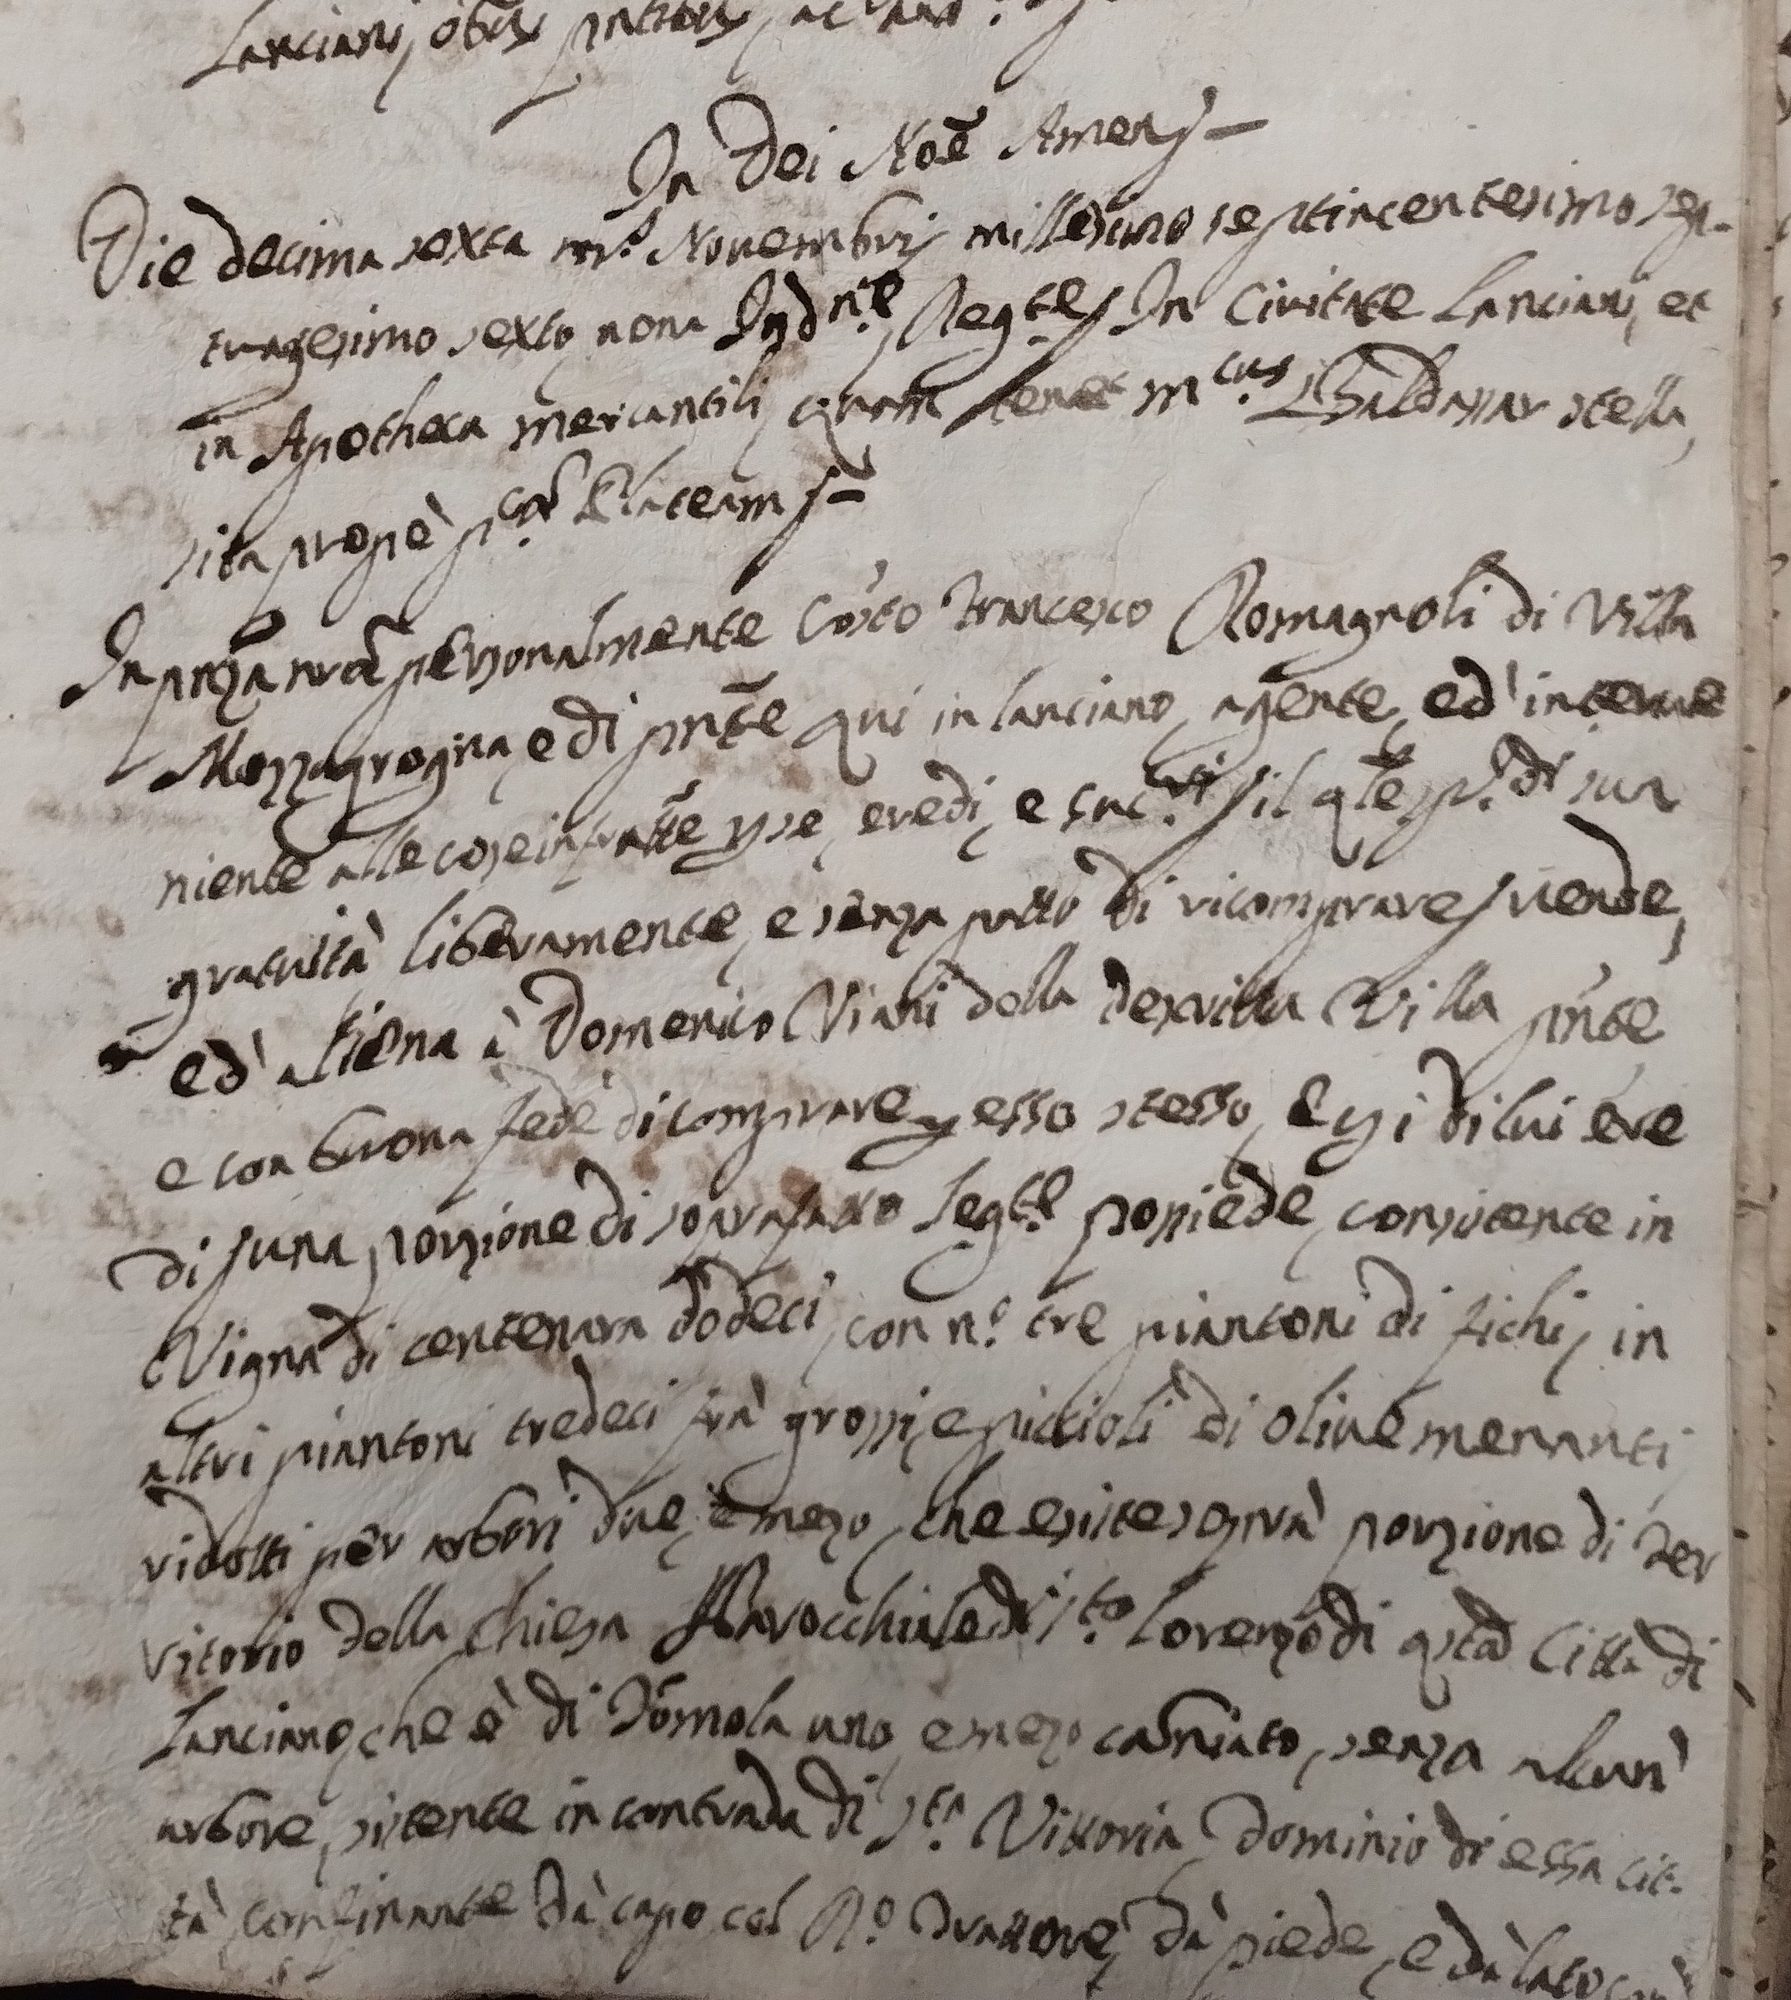 Lanciani,
In Dei Noē Amen
Die decima sexta m.s Novembris millesimo septincentesimo sep-
tuagesimo sexto, nona Indn.e, Reg.te, In Civitate Lanciani, et
in Apotheca mercantili, quam tenet m.cus Baldassar Stella,
sita propè p.cam Plateam
In pñza nrã personalmente Cos̃to Francesco Romagnoli di Villa
Mozzagrogna, e di pñte qui in Lanciano, agente, ed' interve
niente alle cose infratte p se, eredi, e suc.ri, il qle p. di sua
gratuità liberamente, e senza patto di ricomprare, vende,
ed' aliena à Domenico Viani della Villa pñte
e con buona fede di comprare p esso stesso, e p i di lui ere
di, una porzione di soprafatto Seg.te possiede, consistente in
Vigna di centenara dodeci, con n.o tre piantoni di fichi, in
altri piantoni tredeci frà grossi, e piccioli di olive menanti
ridotti per arbori due, e mezo, che esiste soprà porzione di Ter
ritorio della Chiesa Parocchiale di S.to Lorenzo di qsta Città di
Lanciano, che è di Tomola uno, e mezo, senza alcun'
arbore, sistente in contrada di S.ta Vittoria, Dominio di essa Cit-
tà confinante dà capo col R.o Trattore, dà piede, e dà lato con